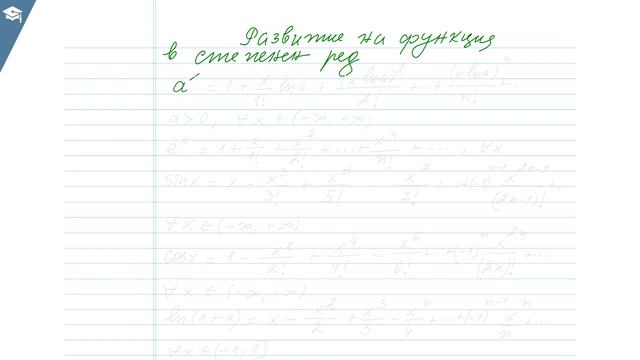 Развитие на функция
в степенен ред
a^x = 1 + x/1! ln a + (x ln a)^2/2! + ... + (x ln a)^n/n! + ...
a > 0, ∀x ∈ (-∞, +∞)
e^x = 1 + x/1! + x^2/2! + ... + x^n/n! + ..., ∀x
sin x = x - x^3/3! + x^5/5! - x^7/7! ... + (-1)^{n-1} x^{2n-1}/(2n-1)! + ...
∀x ∈ (-∞, +∞)
cos x = 1 - x^2/2! + x^4/4! - x^6/6! + ... + (-1)^n x^{2n}/(2n)! + ...
∀x ∈ (-∞, +∞)
ln(1+x) = x - x^2/2 + x^3/3 - x^4/4 + ... + (-1)^{n-1} x^n/n + ...
∀x ∈ (-1, 1]